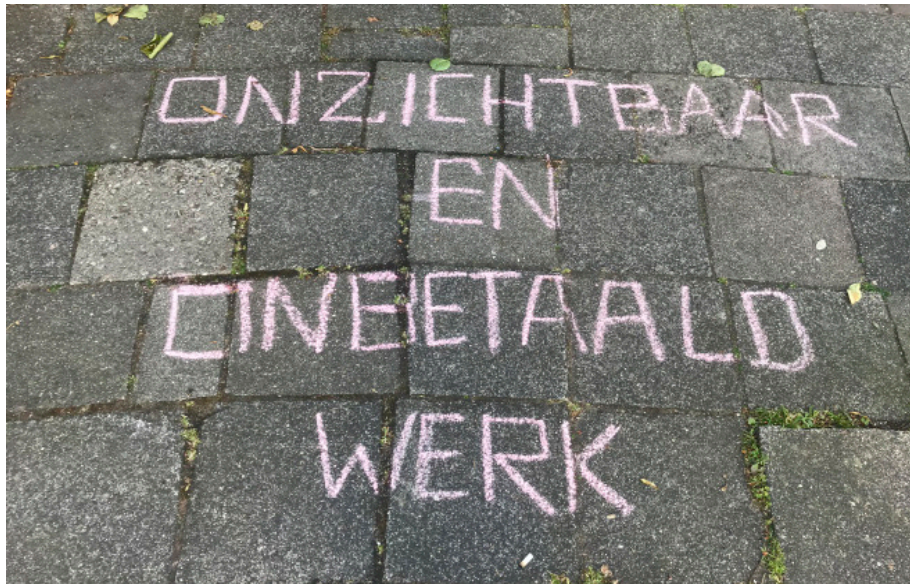 ONZICHTBAAR
EN
ONBETAALD
WERK